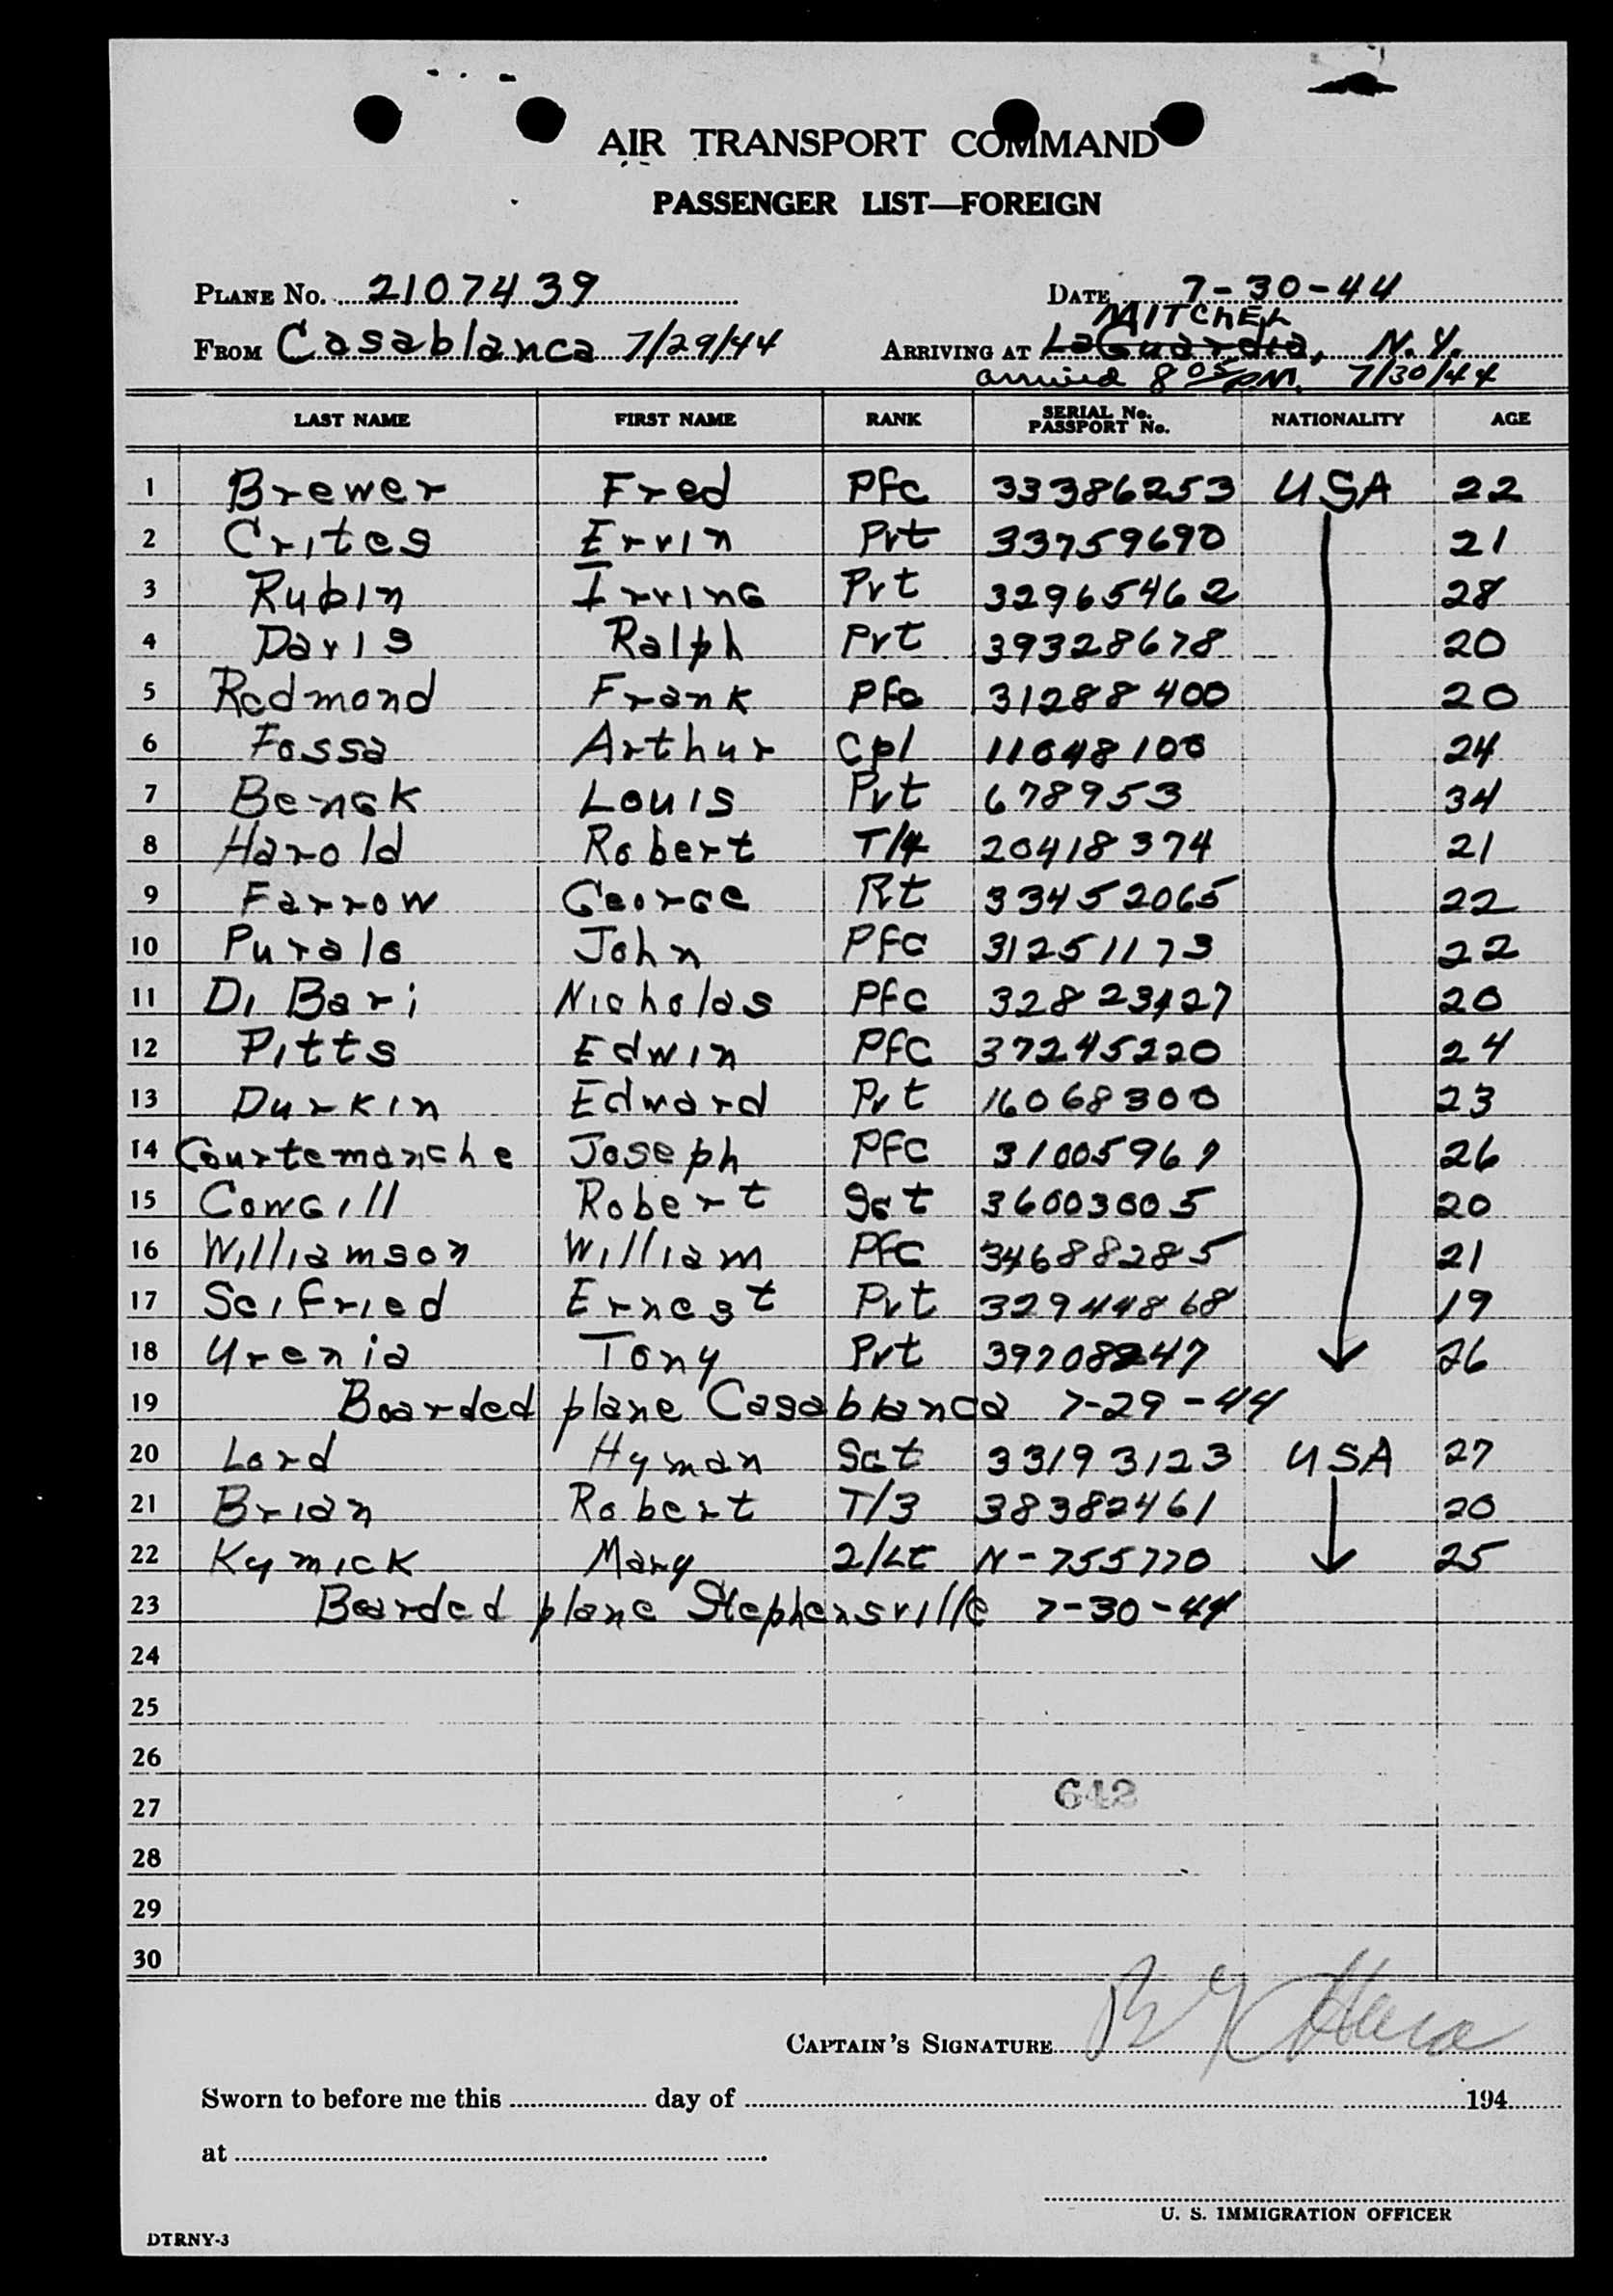 AIR TRANSPORT COMMAND
PASSENGER LIST—FOREIGN
PLANE No. 2107439 DATE 7-30-44
MITCHEL
FROM Casablanca 7/29/44 ARRIVING AT LaGuardia, N.Y.
arrived 8 05 PM. 7/30/44
LAST NAME FIRST NAME RANK SERIAL No. PASSPORT No. NATIONALITY AGE
1 Brewer Fred Pfc 33386253 USA 22
2 Crites Ervin Pvt 33759690 21
3 Rubin Irving Pvt 32965462 28
4 Davis Ralph Pvt 39328678 20
5 Redmond Frank Pfc 31288400 20
6 Fossa Arthur Cpl 11048100 24
7 Louis Pvt 678953 34
8 Harold Robert T/4 20418374 21
9 Farrow George Pvt 33452065 22
10 John Pfc 31251173 22
11 Di Bari Nicholas Pfc 32823127 20
12 Pitts Edwin Pfc 37245220 24
13 Durkin Edward Pvt 16068300 23
14 Courtemanche Joseph Pfc 31005967 26
15 Cowgill Robert Sgt 36003005 20
16 Williamson William Pfc 34688285 21
17 Seifried Ernest Pvt 32944868 19
18 Urenia Tony Pvt 39708247 26
19 Boarded plane Casablanca 7-29-44
20 Lord Hyman Sgt 33193123 USA 27
21 Brian Robert T/3 38382461 20
22 Kymick Mary 2/Lt N-755770 25
23 Boarded plane Stephensville 7-30-44
24
25
26
27
28
29
30
CAPTAIN'S SIGNATURE
Sworn to before me this day of 194
at
U. S. IMMIGRATION OFFICER
DTRNY-3